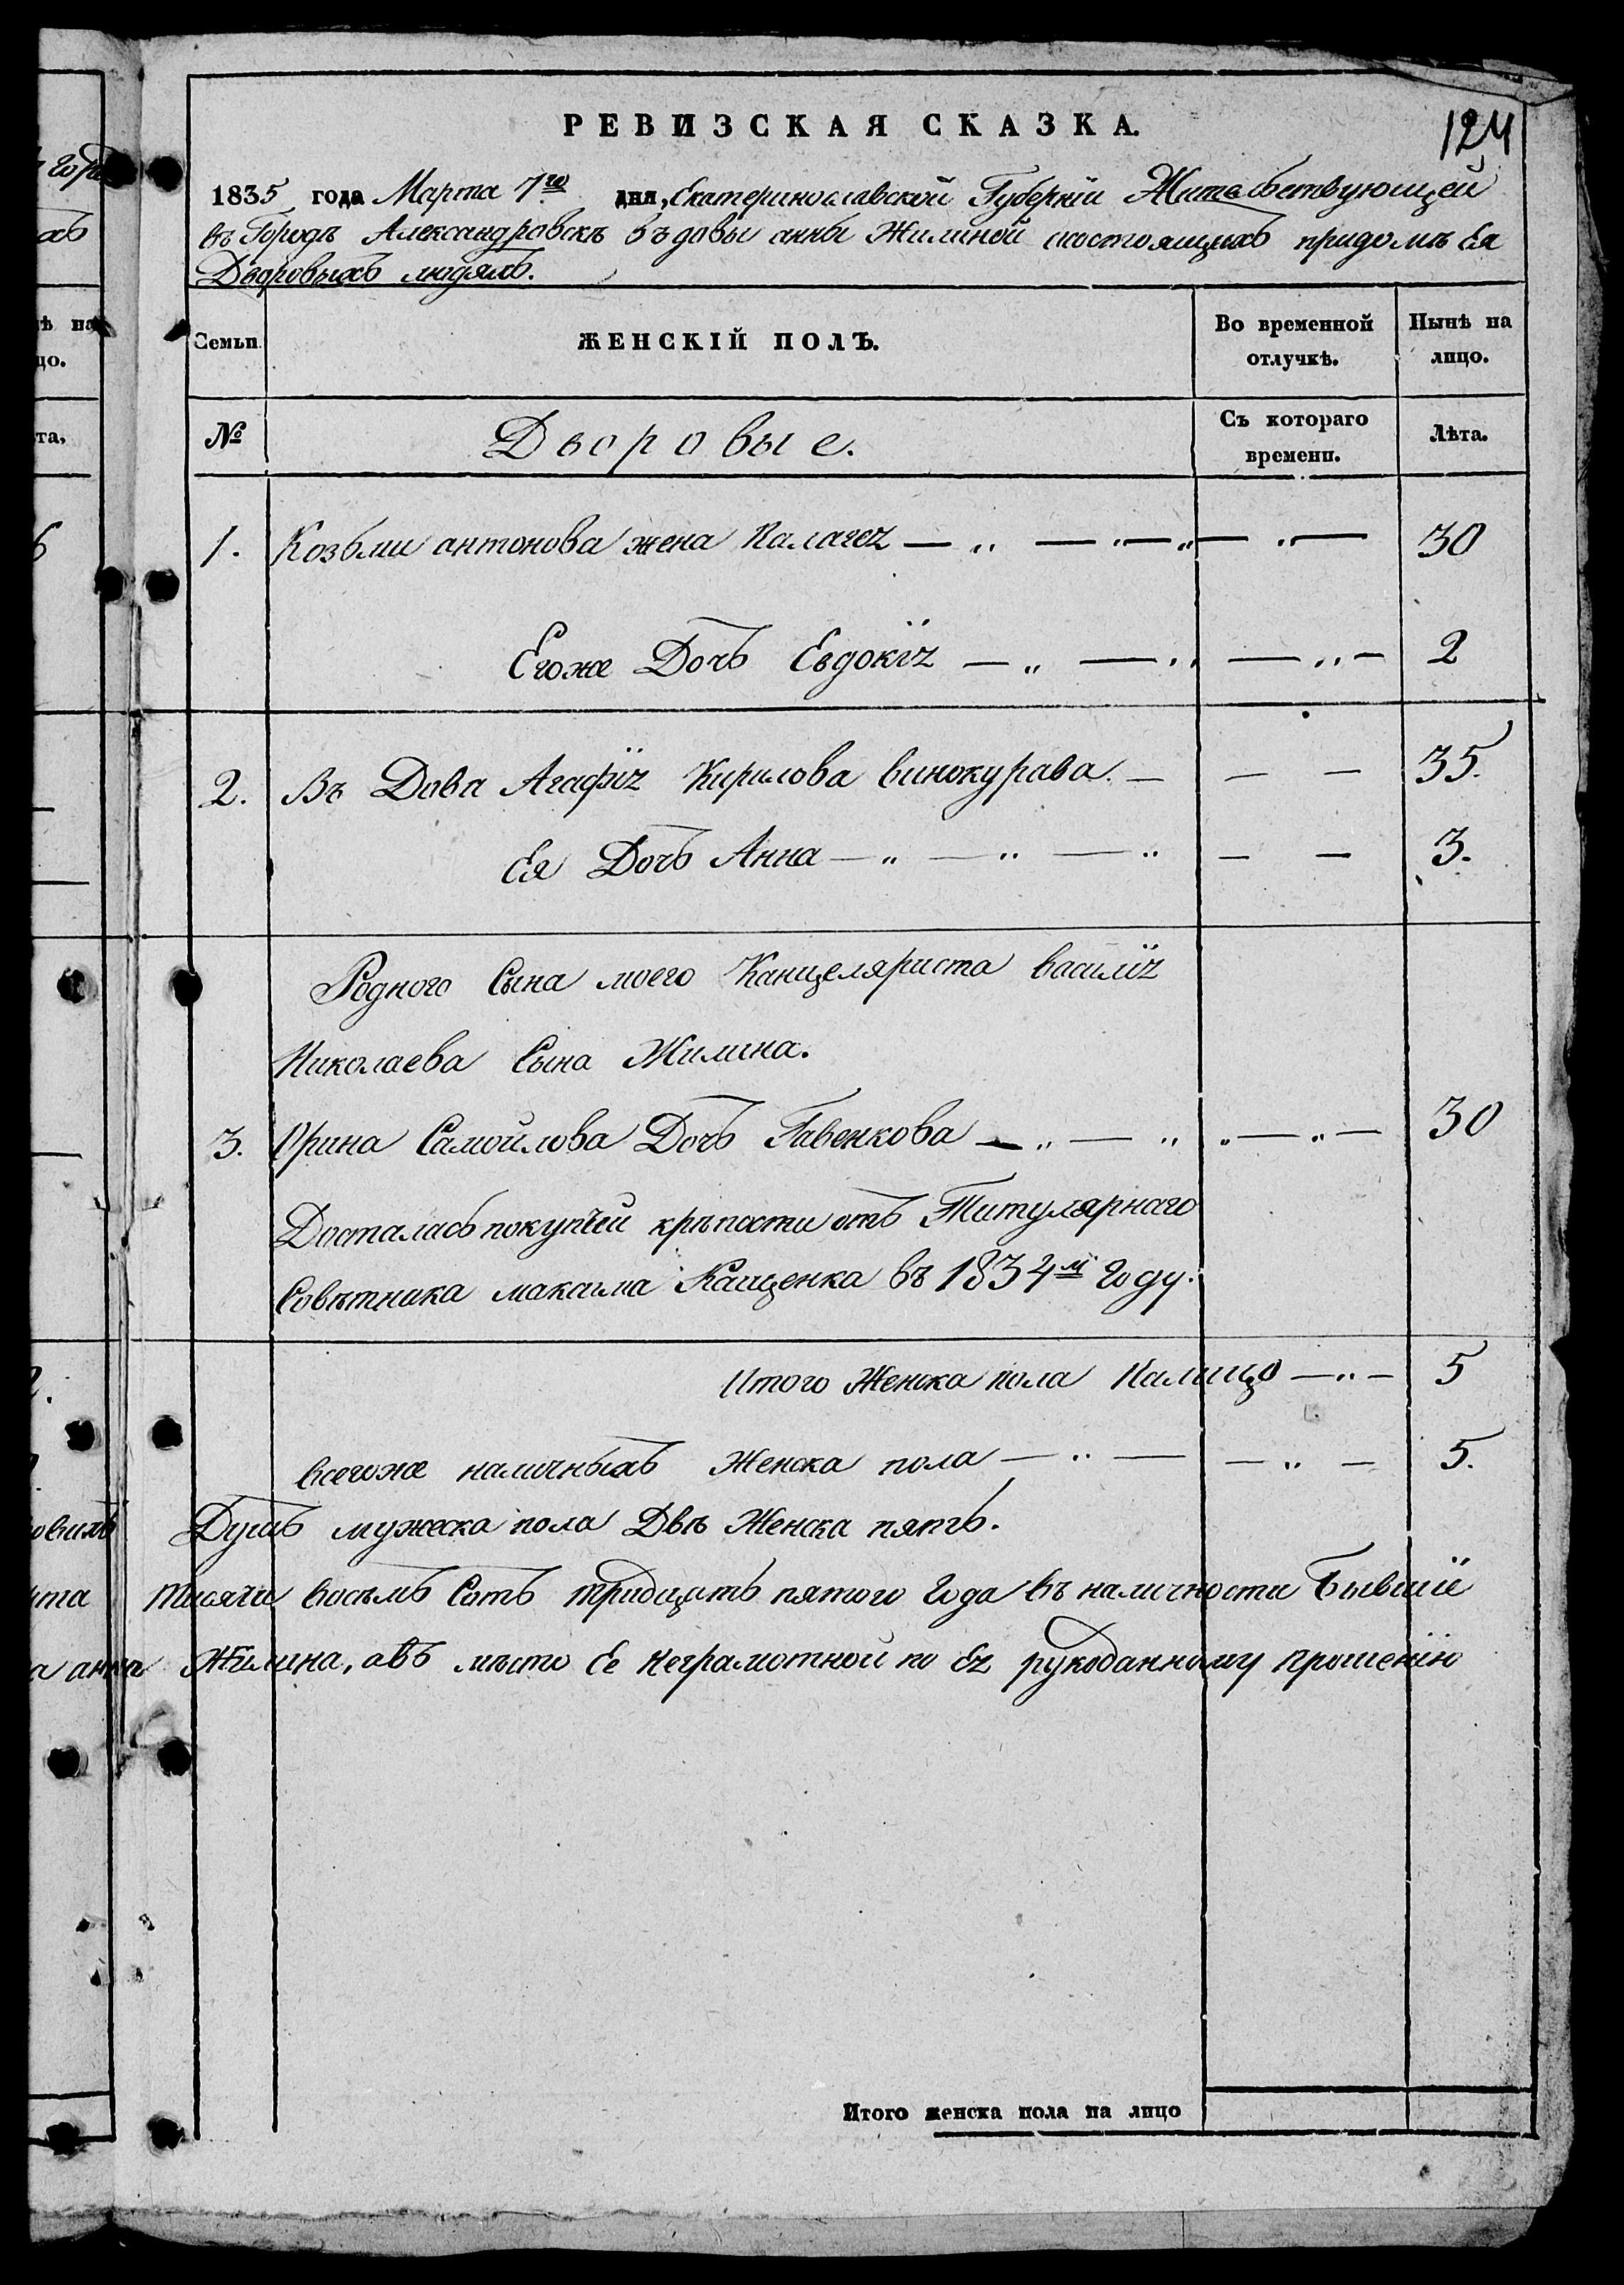 РЕВИЗСКАЯ СКАЗКА.
124
1835 года Марта 7го дня, Екатеринославской Губерніи Жительствующей
въ Городѣ Александровскѣ въдовы анны Жилиной состоящихъ придомѣ Ея
Дворовыхъ людяхъ.
Семьи
ЖЕНСКІЙ ПОЛЪ.
Во временной отлучкѣ.
Нынѣ на лицо.
№
Дворовые.
Съ котораго времени.
Лѣта.
1. Козьми антонова жена Палагея — „ — „ — „ — „ — 30
Егоже Дочь Евдокія — „ — „ — „ — 2
2. Въ Дова Агафія Кирилова винокурава. — — — 35.
Ея Дочь Анна — „ — „ — „ — — 3.
Родного Сына моего Канцеляриста василія
Николаева Сына Жилина.
3. Орина Самойлова Дочь Гавенкова — „ — „ „ — „ — 30
Досталась покупчей крѣпости отъ Титулярнаго
Совѣтника максима Кащенка въ 1834м году.
Итого Женска пола Налицо — „ — 5
всегоже наличныхъ Женска пола — „ — — „ — 5.
Душъ мужеска пола Двѣ Женска пять.
тисячи восьмь Сотъ тридцать пятого года въ наличности Бывшіи
а анна Жилина, авъ мѣсто Ее неграмотной по Ея рукоданному прошенію
Итого женска пола на лицо